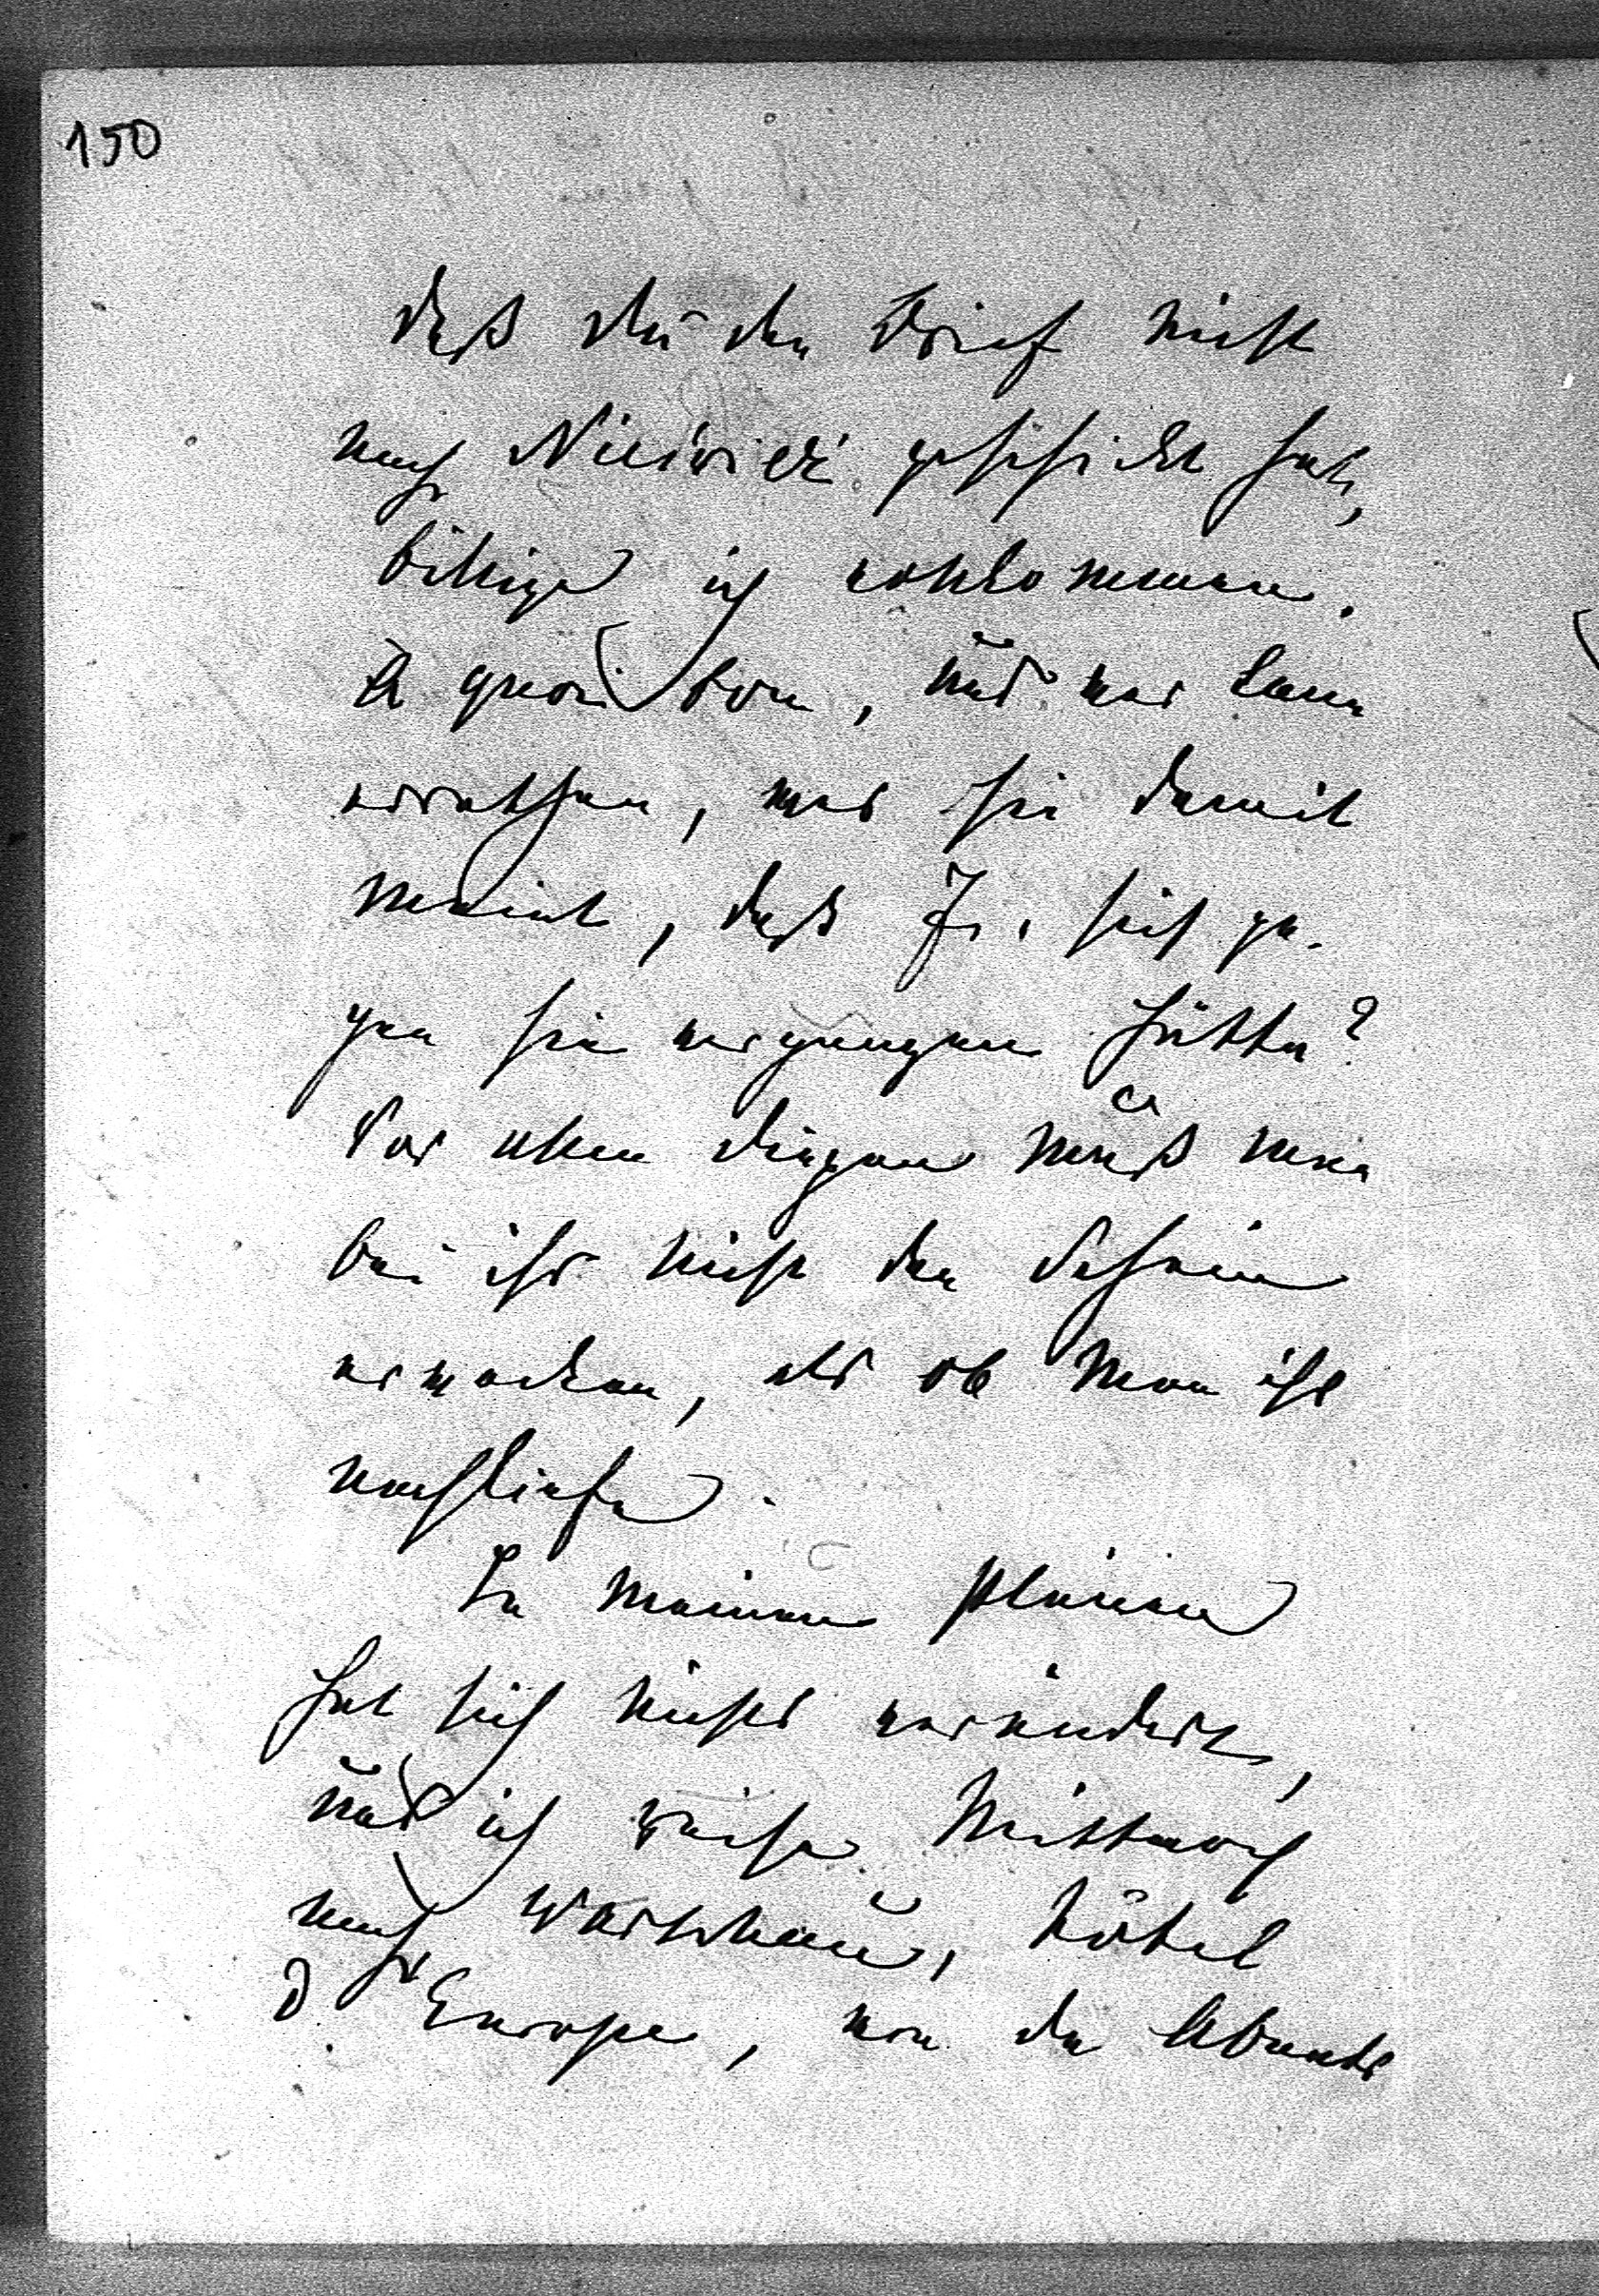 150
daß du den Brief nicht
nach Nieświeź geschickt hast,
billige ich vollkommen.
A quoi bon, und wer kann
errathen, was sie damit
meint, daß Ihr sich ge-
gen sie vergangen hättet?
Vor allen Dingen muß man
bei ihr nicht den Schein
erwecken, als ob man ihr
nachliefe.
In meinen Plänen
hat sich nichts verändert,
und ich reise Mittwoch
nach Warschau, Hôtel
d'Europe, von da Abends